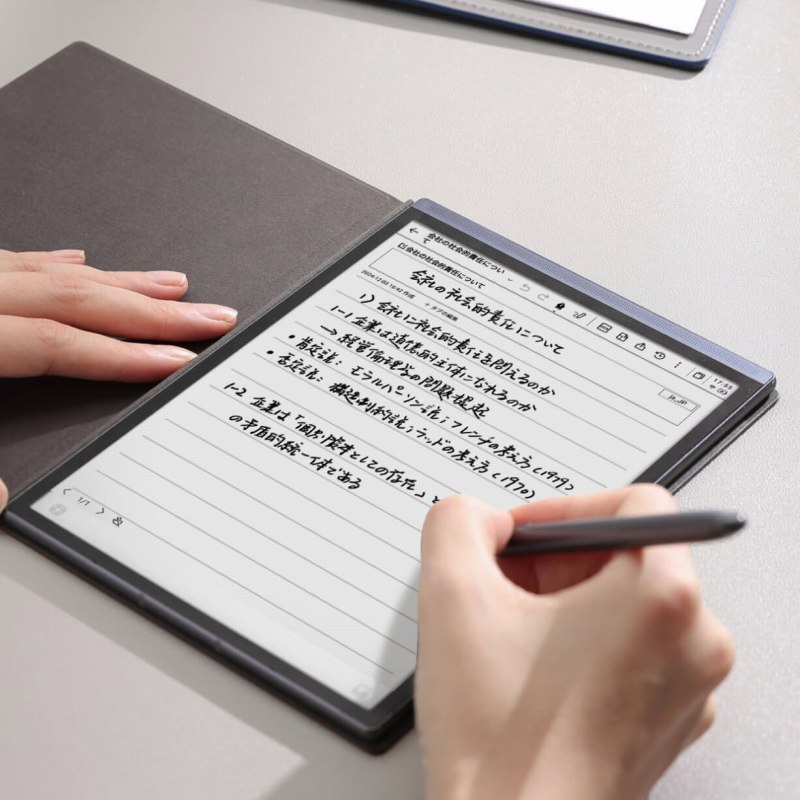 会社の社会的責任につい
て
会社の社会的責任について
2024-12-03 16:42 作成 + タグの編集
17:35
ja_JP
会社の社会的責任について
1) 会社に社会的責任を問えるのか
1-1 企業は道徳的主体になれるのか
→ 経営倫理学の問題提起
• 肯定説：モラルパーソン説；フレンチの考え方(1979)
• 否定説：構造制約的説；ラッドの考え方(1970)
1-2 企業は「個別資本としての存在」と
の矛盾的統一体である
1/1